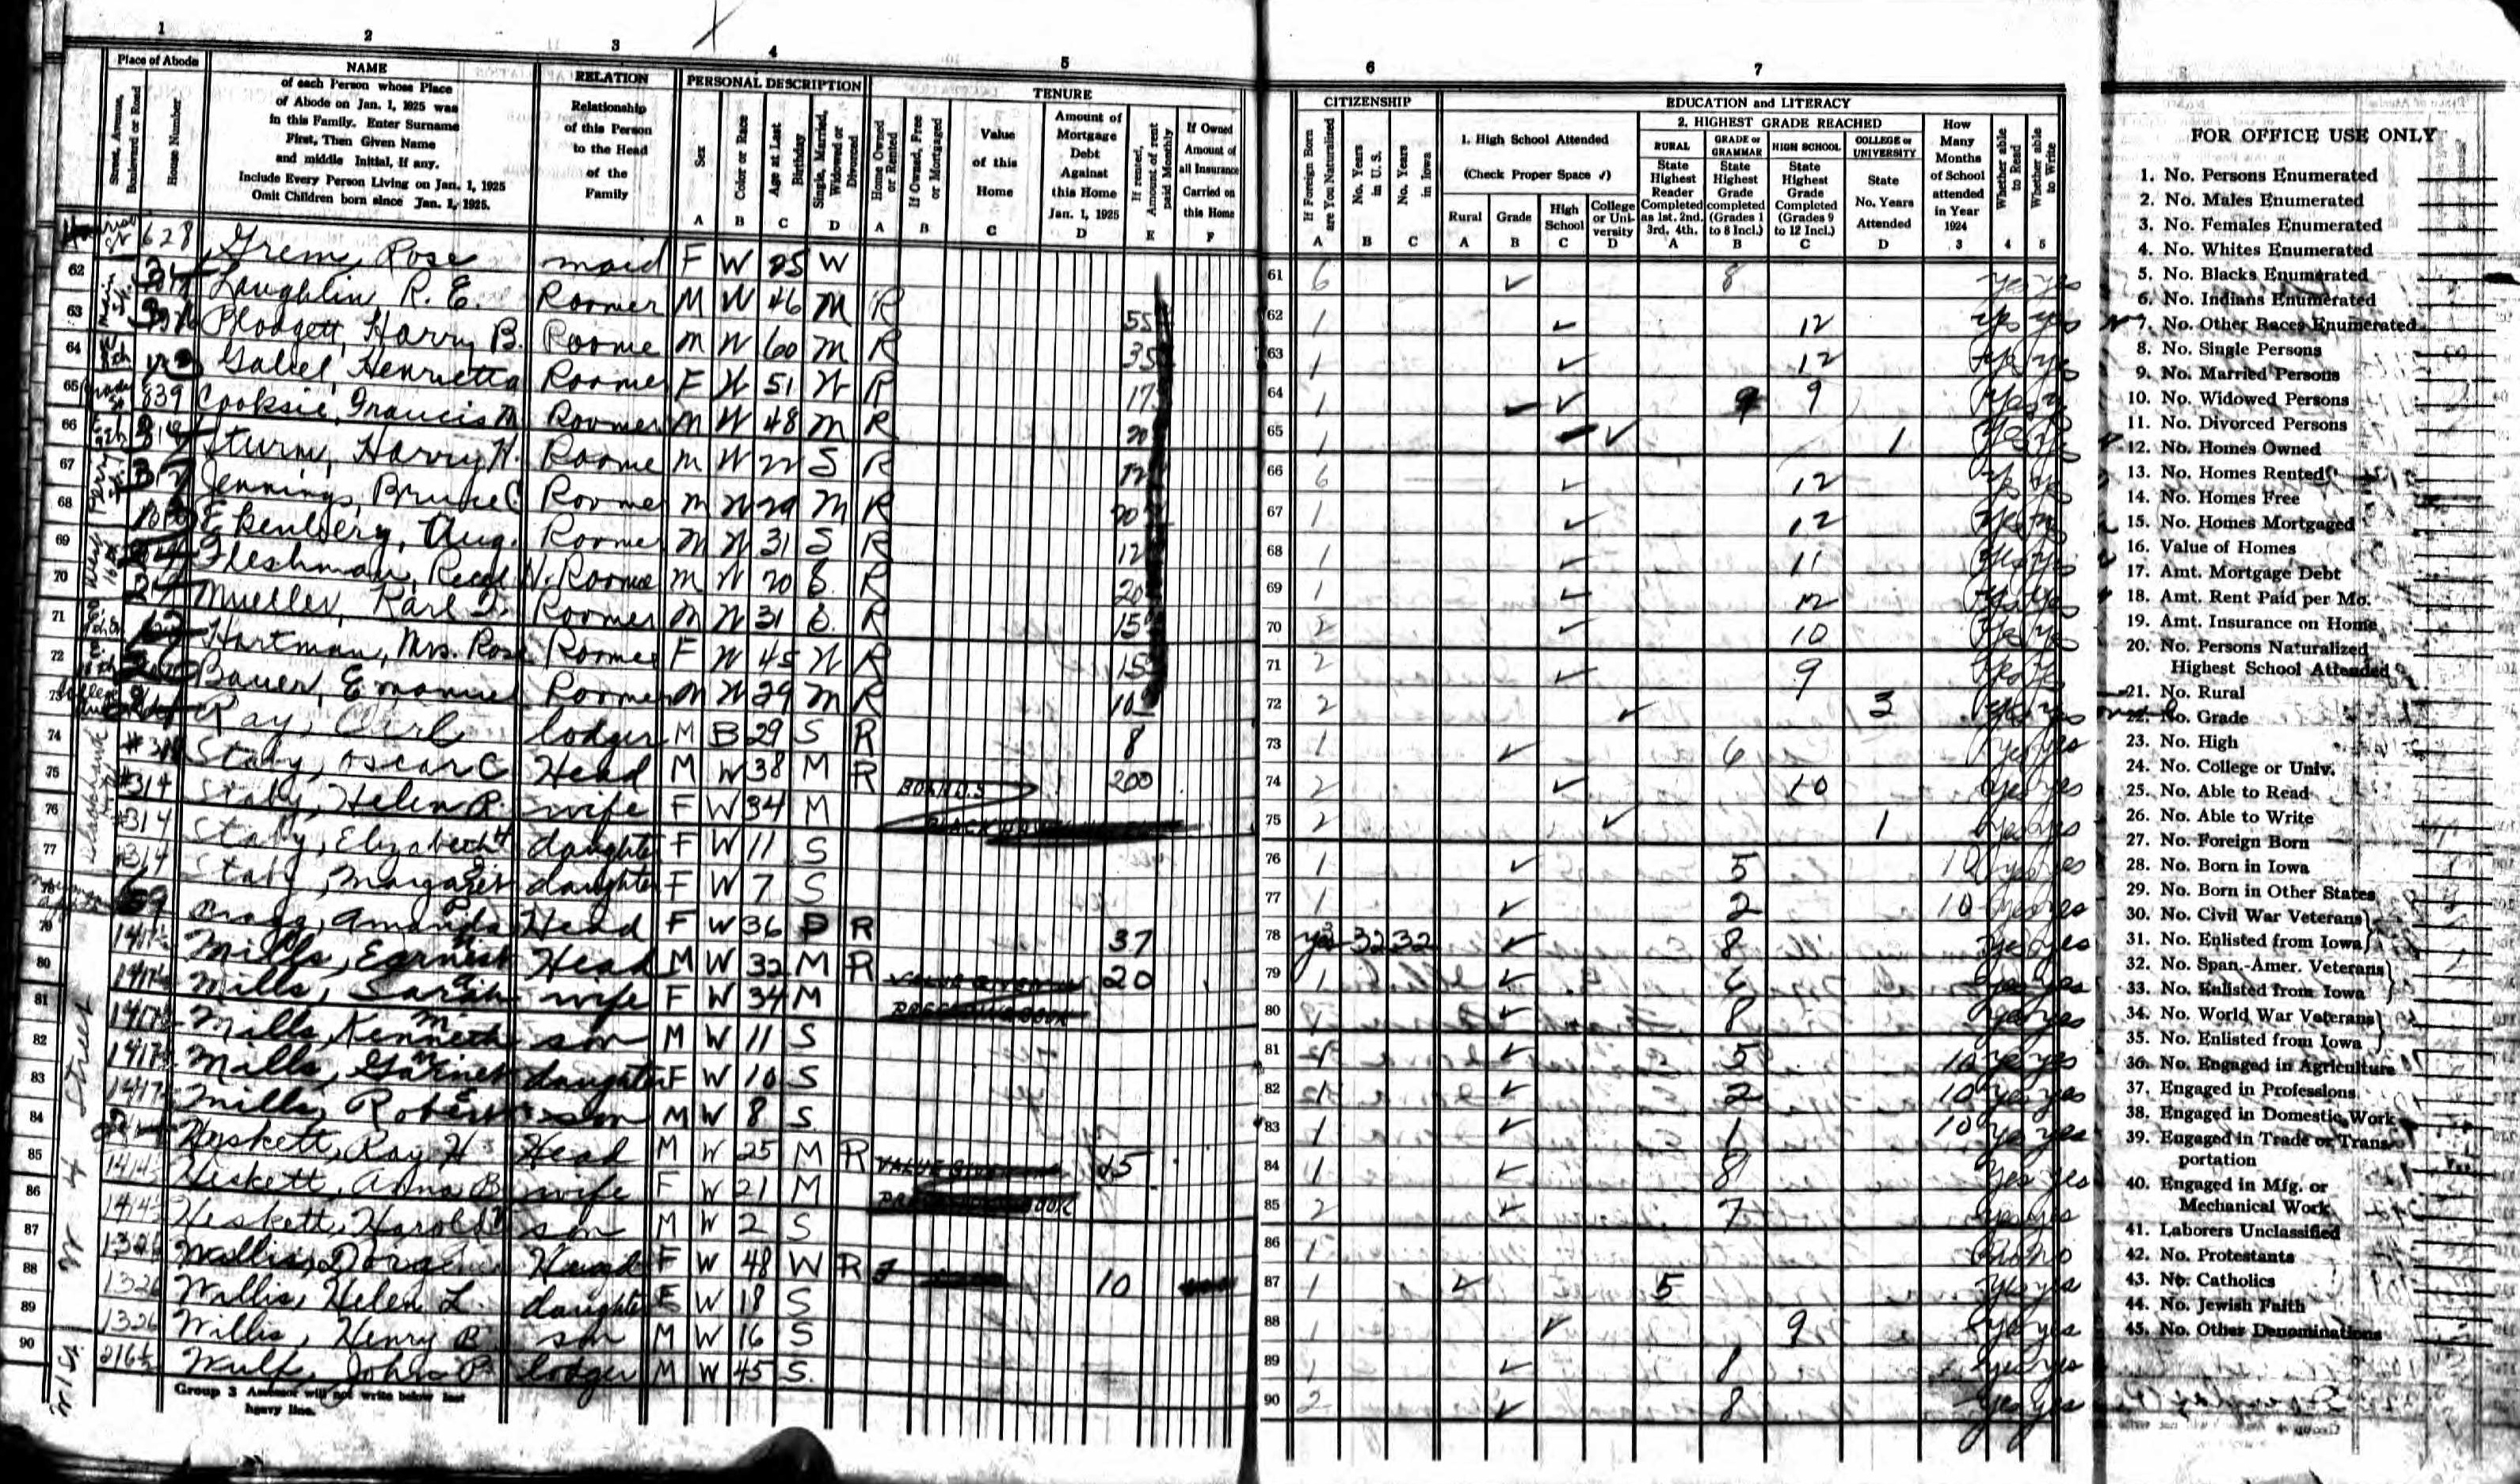 1 2 3 4 5 6 7
Place of Abode
Street, Avenue, Boulevard or Road
House Number
NAME
of each Person whose Place
of Abode on Jan. 1, 1925 was
in this Family. Enter Surname
First, Then Given Name
and middle Initial, if any.
Include Every Person Living on Jan. 1, 1925
Omit Children born since Jan. 1, 1925.
RELATION
Relationship
of this Person
to the Head
of the
Family
PERSONAL DESCRIPTION
Sex
Color or Race
Age at Last Birthday
Single, Married, Widowed or Divorced
A B C D
TENURE
Home Owned or Rented
If Owned, Free or Mortgaged
Value of this Home
Amount of Mortgage Debt Against this Home Jan. 1, 1925
If rented, Amount of rent paid Monthly
If Owned Amount of all Insurance Carried on this Home
A B C D E F
CITIZENSHIP
If Foreign Born are You Naturalized
No. Years in U. S.
No. Years in Iowa
A B C
EDUCATION and LITERACY
1. High School Attended
(Check Proper Space ✓)
Rural Grade High School College or University
A B C D
2. HIGHEST GRADE REACHED
RURAL
State Highest Reader Completed as 1st. 2nd. 3rd, 4th.
GRADE or GRAMMAR
State Highest Grade completed (Grades 1 to 8 Incl.)
HIGH SCHOOL
State Highest Grade Completed (Grades 9 to 12 Incl.)
COLLEGE or UNIVERSITY
State No. Years Attended
A B C D
How Many Months of School attended in Year 1924
Whether able to Read
Whether able to Write
3 4 5
628 Grem, Rose maid F W 25 W 61 6 ✓ 8 yes yes
62 Laughlin, R. E. Roomer M W 46 M R 55 62 1 ✓ 12 yes yes
63 Blodgett, Harry B. Roome M W 60 M R 35 63 1 ✓ 12 yes yes
64 Gabel, Henrietta Roomer F W 51 W R 17 64 1 ✓ 9 yes
65 839 Cooksie, Francis M Roomer M W 48 M R 20 65 1 ✓ 1 yes yes
66 Sturm, Harry H. Roome M W 22 S R 12 66 6 ✓ 12 yes yes
67 Jennings, Bruce C Roomer M W 29 M R 20 67 1 ✓ 12 yes
68 Ekenberg, Aug. Roomer M W 31 S R 12 68 1 ✓ 11 yes yes
69 Fleshman, W. Roome M W 20 S. R 20 69 1 ✓ 12 yes yes
70 Mueller, Karl Roomer M W 31 S. R 15 70 2 ✓ 10 yes yes
71 Hartman, Mrs. Rose Roomer F W 45 W R 15 71 2 ✓ 9 yes yes
72 Bauer, Emanuel Roomer M W 29 M R 10 72 2 ✓ 3 yes yes
73 Ray, Carl lodger M B 29 S R 8 73 1 ✓ 6 yes yes
74 #314 Staby, Oscar C Head M W 38 M R 200 74 2 ✓ 10 yes yes
75 #314 Staby, Helen R. wife F W 34 M 75 2 ✓ 1 yes yes
76 #314 Staby, Elizabeth daughter F W 11 S 76 1 ✓ 5 10 yes yes
77 #314 Staby, Margaret daughter F W 7 S 77 1 ✓ 2 10 yes yes
78 Cragg, Amanda Head F W 36 D R 37 78 yes 32 32 ✓ 8 yes yes
79 1417½ Mills, Earnest Head M W 32 M R 20 79 1 ✓ 6 yes yes
80 1417½ Mills, Sarah wife F W 34 M 80 1 ✓ 8 yes yes
81 1417½ Mills, Kenneth M. son M W 11 S 81 1 ✓ 5 10 yes yes
82 1417½ Mills, Garnet daughter F W 10 S 82 1 ✓ 2 10 yes yes
83 1417½ Mills, Robert son M W 8 S 83 1 ✓ 1 10 yes yes
84 Heskett, Ray H Head M W 25 M R 15 84 1 ✓ 8 yes yes
85 1414½ Heskett, Anna B wife F W 21 M 85 2 ✓ 7 yes yes
86 1414½ Heskett, Harold son M W 2 S 86 1 no no
87 1326 Willis, Dora Head F W 48 W R 10 87 1 ✓ 5 yes yes
88 1326 Willis, Helen L. daughter F W 18 S 88 1 ✓ 9 yes yes
89 1326 Willis, Henry B son M W 16 S 89 1 ✓ 8 yes yes
90 216½ Wulf, John P. lodger M W 45 S. 90 2 ✓ 8 yes yes
W 4 Street
Group 3 Assessor will not write below last
heavy line.
FOR OFFICE USE ONLY
1. No. Persons Enumerated
2. No. Males Enumerated
3. No. Females Enumerated
4. No. Whites Enumerated
5. No. Blacks Enumerated
6. No. Indians Enumerated
7. No. Other Races Enumerated
8. No. Single Persons
9. No. Married Persons
10. No. Widowed Persons
11. No. Divorced Persons
12. No. Homes Owned
13. No. Homes Rented
14. No. Homes Free
15. No. Homes Mortgaged
16. Value of Homes
17. Amt. Mortgage Debt
18. Amt. Rent Paid per Mo.
19. Amt. Insurance on Home
20. No. Persons Naturalized
Highest School Attended
21. No. Rural
22. No. Grade
23. No. High
24. No. College or Univ.
25. No. Able to Read
26. No. Able to Write
27. No. Foreign Born
28. No. Born in Iowa
29. No. Born in Other States
30. No. Civil War Veterans
31. No. Enlisted from Iowa
32. No. Span.-Amer. Veterans
33. No. Enlisted from Iowa
34. No. World War Veterans
35. No. Enlisted from Iowa
36. No. Engaged in Agriculture
37. Engaged in Professions
38. Engaged in Domestic Work
39. Engaged in Trade or Transportation
40. Engaged in Mfg. or
Mechanical Work
41. Laborers Unclassified
42. No. Protestants
43. No. Catholics
44. No. Jewish Faith
45. No. Other Denominations